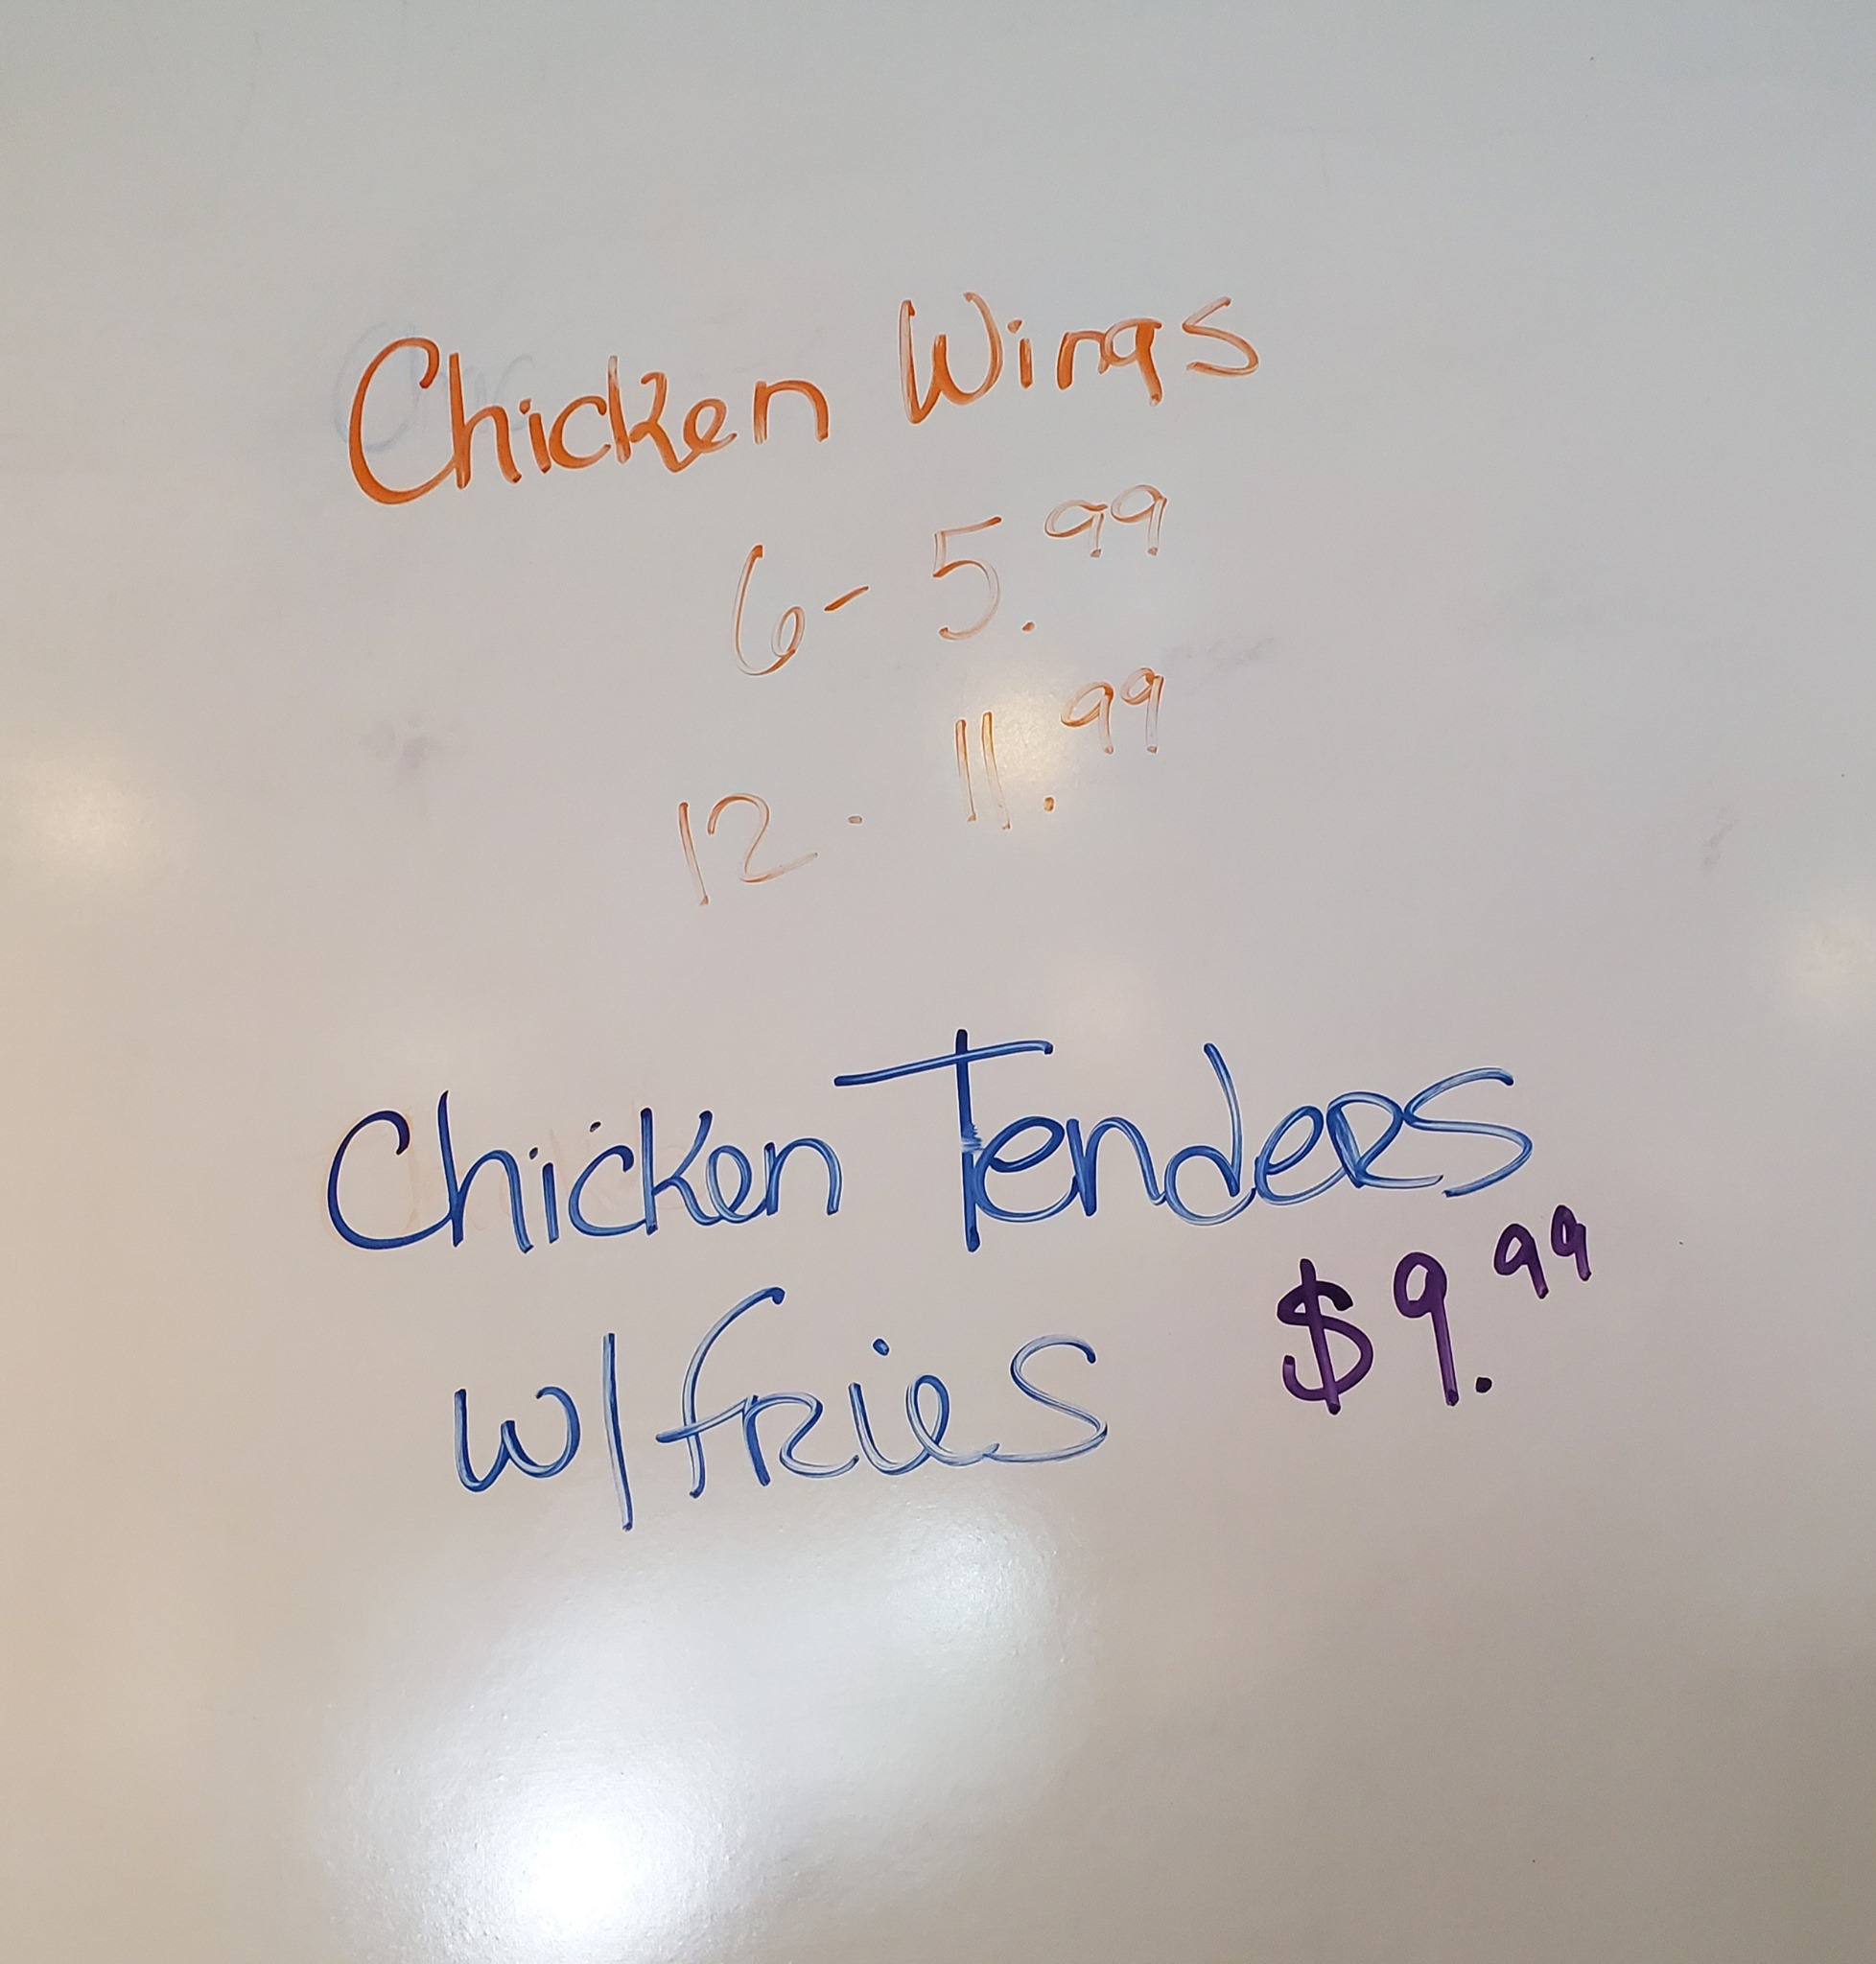 Chicken Wings
6- 5.99
12. 11.99
Chicken Tenders
w/fries $9.99